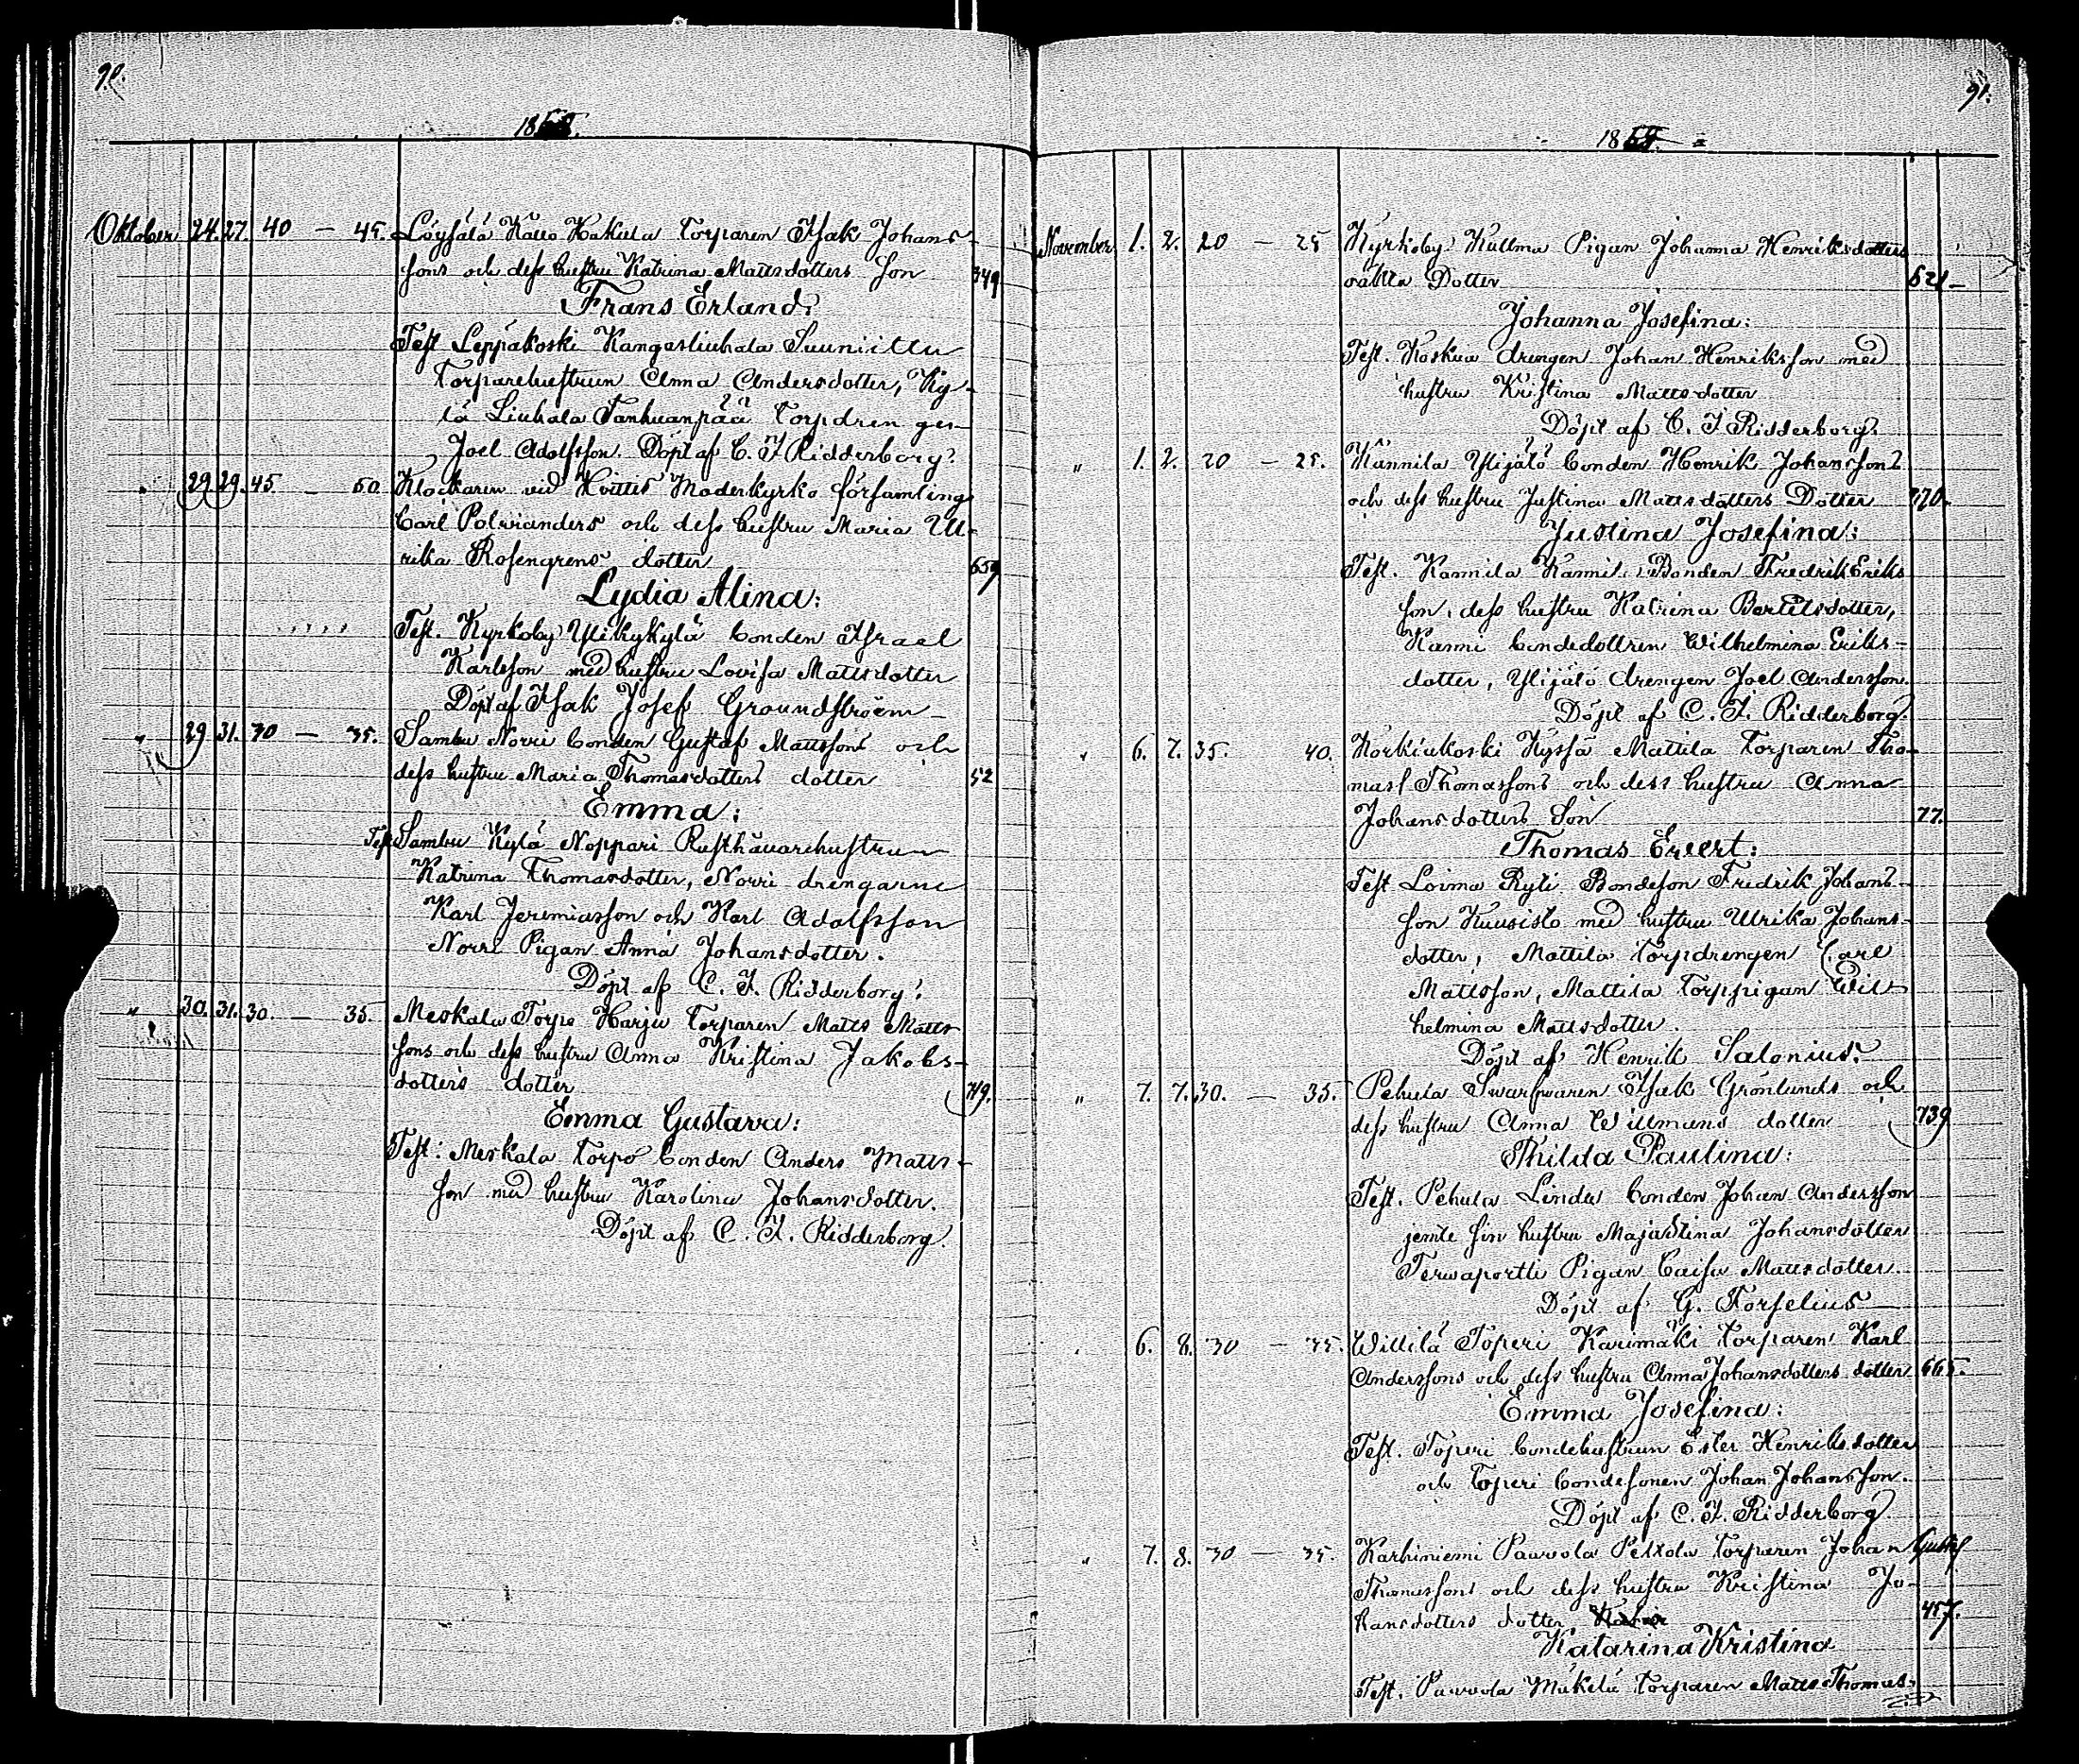 90.
1868.
Oktober 24. 27. 40 — 45. Löysälä Katto Kakula Torparen Isak Johans-
sons och dess hustru Katrina Mattsdotters Son 349
Frans Erland:
Test Leppäkoski Kangasliuhala Suuniittu
Torparehustrun Anna Andersdotter, Ky-
lä Liuhala Tanhuanpää Torpdrengen
Joel Adolfsson. Döpt af C. F. Ridderborg.
" 29. 29. 45. — 50. Klockaren vid Hvittis Moderkyrko församling
Carl Polvianders och dess hustru Maria Ul-
rika Rosengrens dotter 659
Lydia Alina:
Test. Kyrkoby Ylikylä bonden Israel
Karlsson med hustru Lovisa Mattsdotter
Döpt af Isak Josef Groundstroem
" 29 31. 30 — 35. Sambu Norri bonden Gustaf Mattssons och
dess hustru Maria Thomasdotters dotter 52
Emma:
Test Sambu Kylä Noppari Rusthållarehustrun
Katrina Thomasdotter, Norri drengarne
Karl Jeremiasson och Karl Adolfsson
Norri Pigan Anna Johansdotter.
Döpt af C. F. Ridderborg.
" 30. 31. 30. — 35. Meskala Torpo Harju Torparen Matts Matts-
sons och dess hustru Anna Kristina Jakobs-
dotters dotter 49.
Emma Gustava:
Test: Meskala Torpo bonden Anders Matts-
son med hustru Karolina Johansdotter.
Döpt af C. F. Ridderborg.
91.
1868.
November 1. 2. 20 — 25 Kyrkoby Kullma Pigan Johanna Henriksdotters
oäkta Dotter 521
Johanna Josefina:
Test. Koskua drengen Johan Henriksson med
hustru Kristina Mattsdotter
Döpt af C. F. Ridderborg.
" 1. 2. 20 — 25. Kännilä Ylijälö bonden Henrik Johanssons
och dess hustru Justina Mattsdotters Dotter 170.
Justina Josefina:
Test. Kannila Kanni Bonden Fredrik Eriks
son, dess hustru Katrina Bertilsdotter,
Kanni bondedottren Wilhelmina Eriks-
dotter, Ylijälö drengen Joel Andersson.
Döpt af C. F. Ridderborg.
" 6. 7. 35. 40. Korkiakoski Kyssä Mattila Torparen Tho-
mas Thomassons och dess hustru Anna
Johansdotters Son 77.
Thomas Evert:
Test Loima Ryti Bondeson Fredrik Johans-
son Kuusisto med hustru Ulrika Johans-
dotter, Mattila Torpdrengen Carl
Mattsson, Mattila Torppigan Wil-
helmina Mattsdotter.
Döpt af Henrik Salonius.
" 7. 7. 30. — 35. Pehula Swarfwaren Isak Grönlunds och
dess hustru Anna Willmans dotter 739
Thilda Paulina:
Test. Pehula Linda bonden Johan Andersson
jemte sin hustru Maja Stina Johansdotter
Terwaportti Pigan Caisa Mattsdotter.
Döpt af G. Forselius
" 6. 8. 30 — 35. Willilä Töperi Karimäki Torparen Karl
Anderssons och dess hustru Anna Johansdotters dotter 665.
Emma Josefina:
Test. Töperi bondehustrun Ester Henriksdotter
och Töperi bondesonen Johan Johansson.
Döpt af C. F. Ridderborg
" 7. 8. 30 — 35. Karhiniemi Pawola Peltola Torparen Johan Gustaf
Thomassons och dess hustru Kristina Jo-
hansdotters dotter 457.
Katarina Kristina
Test. Pawola Mäkelä Torparen Matts Thomas-